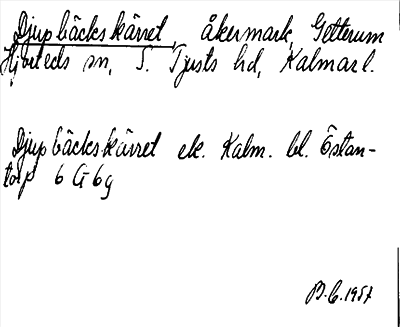 Djupbäckskärret, åkermark, Getterum
Hjorteds sn, S. Tjusts hd, Kalmar l.
Djupbäckskärret ek. Kalm. bl. Östan-
torp 6 G 6g
B.C. 1957